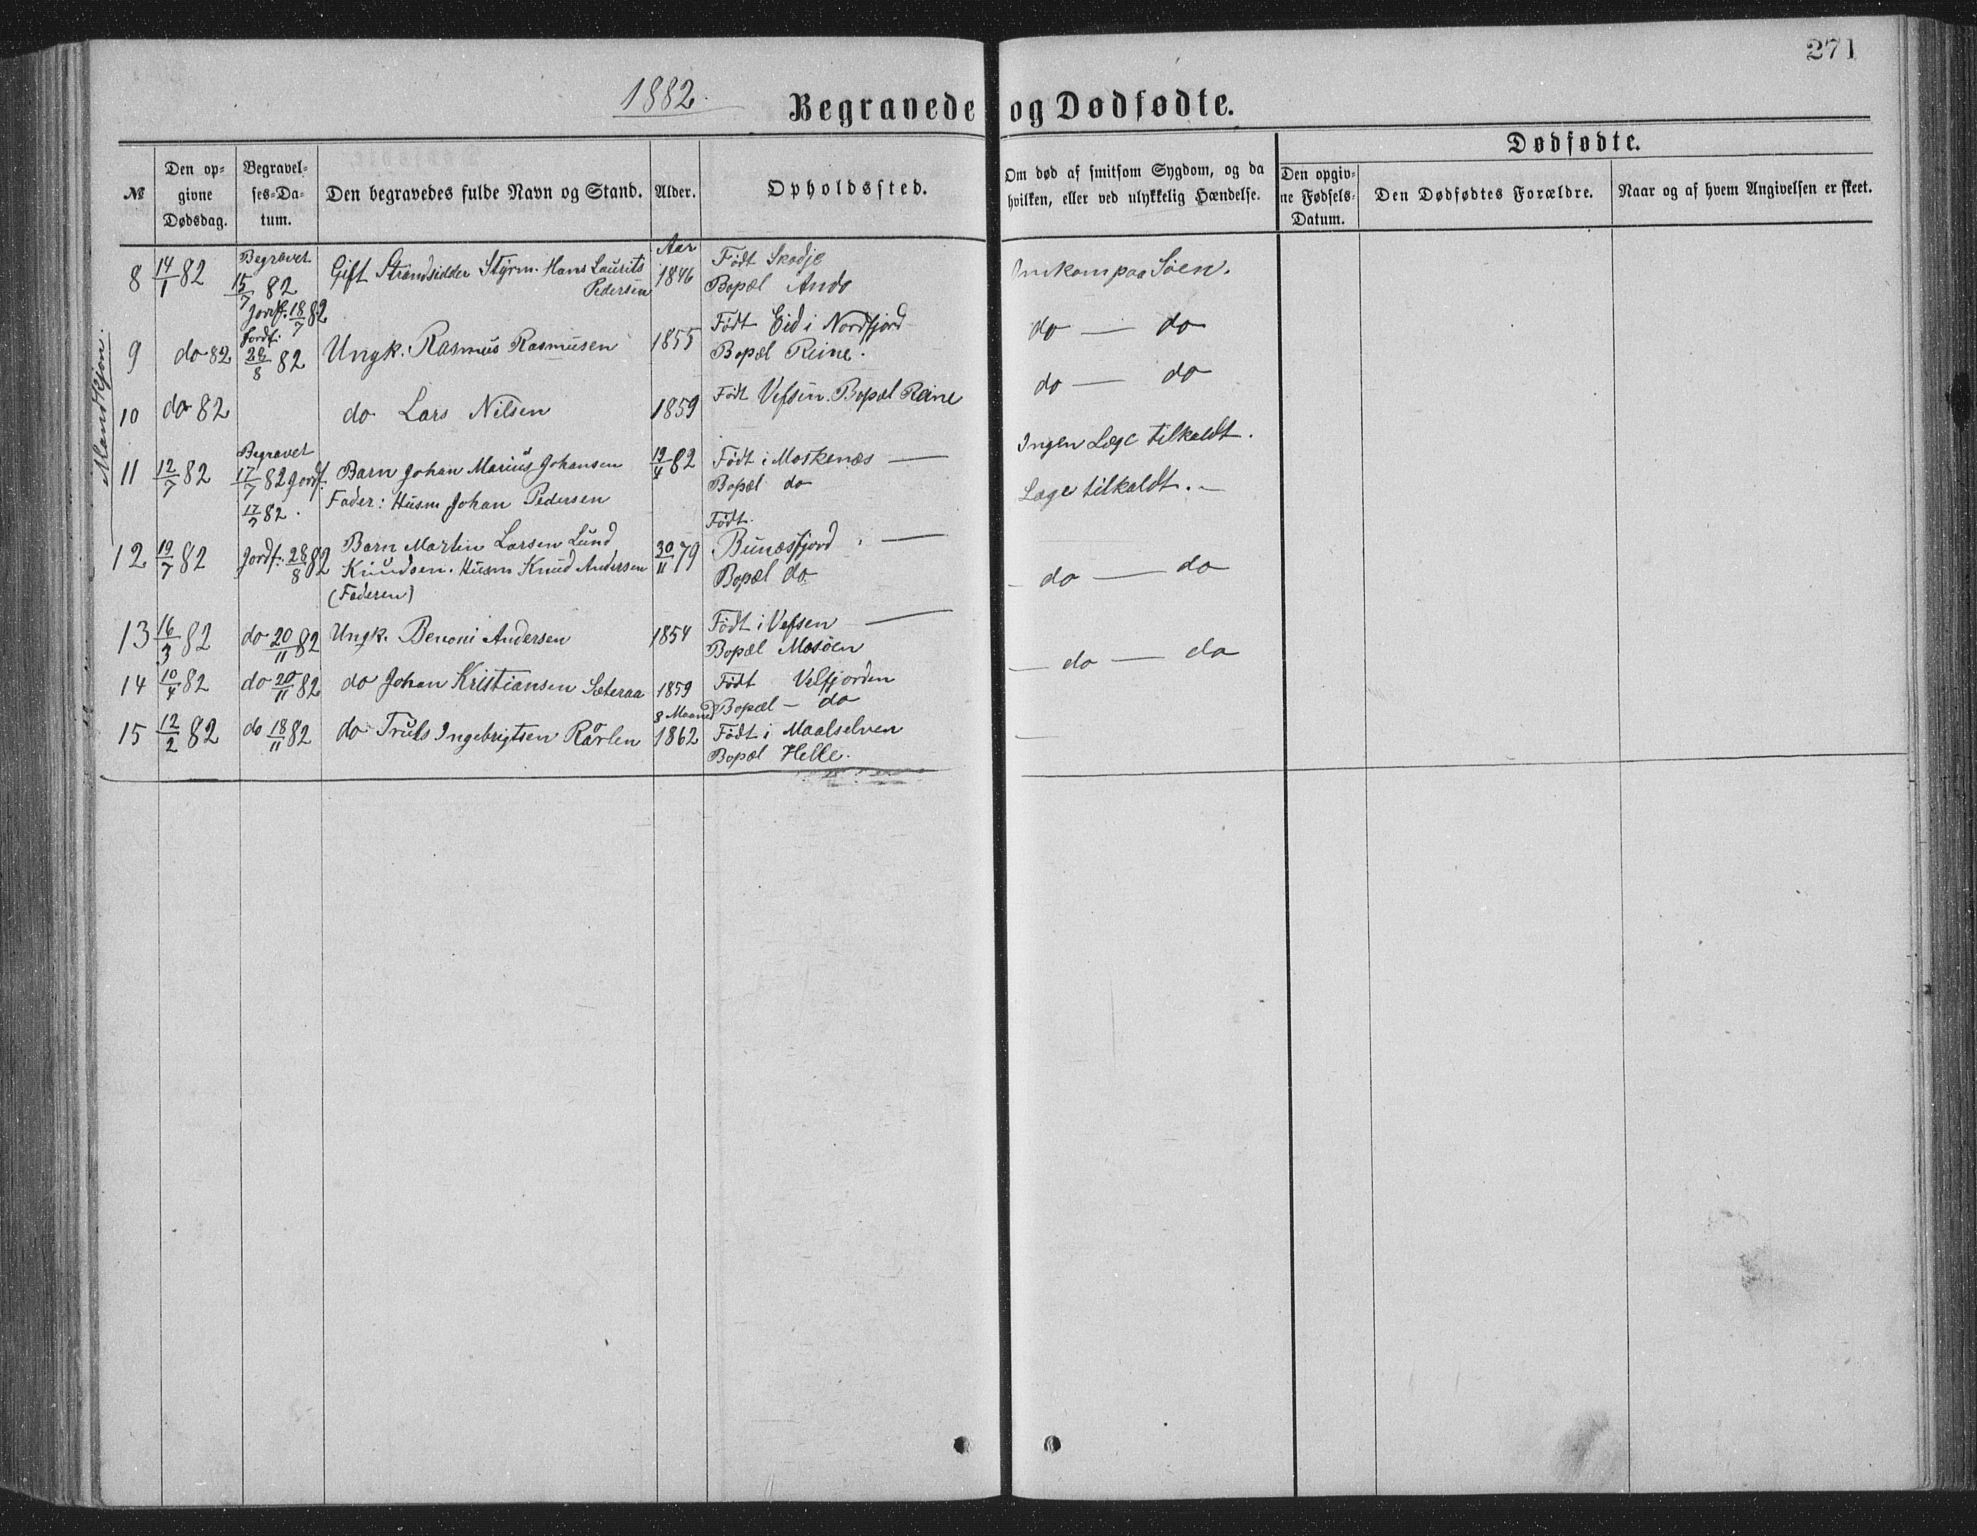 271
1882.
Begravede og Dødfødte.
Dødfødte.
№
Den op-
givne
Dødsdag.
Begravel-
ses-Da-
tum.
Den begravedes fulde Navn og Stand.
Alder.
Opholdssted.
Om død af smitsom Sygdom, og da
hvilken, eller ved ulykkelig Hændelse.
Den opgiv-
ne Fødsels-
Datum.
Den Dødfødtes Forældre.
Naar og af hvem Angivelsen er skeet.
Mandkjøn.
Aar
8 14/1 82 Begravet 15/7 82 Gift Strandsidder Styrm. Hans Laurits 1846 Født Skodje Omkom paa Søen.
Jordf. 18/7 82 Pedersen Bopæl Ando
9 do 82 Jordf. 28/8 82 Ungk. Rasmus Rasmusen 1855 Født Eid i Nordfjord do — do
Bopæl Reine.
10 do 82 do Lars Nilsen 1859 Født Vefsen. Bopæl Reine do — do
11 12/7 82 Begravet 17/7 82 Jordf. Barn Johan Marius Johansen 19/4 82 Født i Moskenæs — Ingen Læge tilkaldt.
17/7 82. Fader: Husm Johan Pedersen Bopæl do
Læge tilkaldt. —
12 19/7 82 Jordf. 28/8 82 Barn Martin Larsen Lund 30/11 79 Født. Bunæsfjord. —
Knudsen. Husm Knud Andersen Bopæl do — do — do
(Faderen)
13 16/3 82 do 20/11 82 Ungk. Benoni Andersen 1854 Født i Vefsen —
Bopæl Mosøen — do — do
14 10/4 82 do 20/11 82 do Johan Kristiansen Sæteraa 1859 Født Velfjorden
Bopæl — do
15 12/2 82 do 18/11 82 do Truls Ingebrigtsen 8 Maaned 1862 Født i Maalselven —
Bopæl Helle.